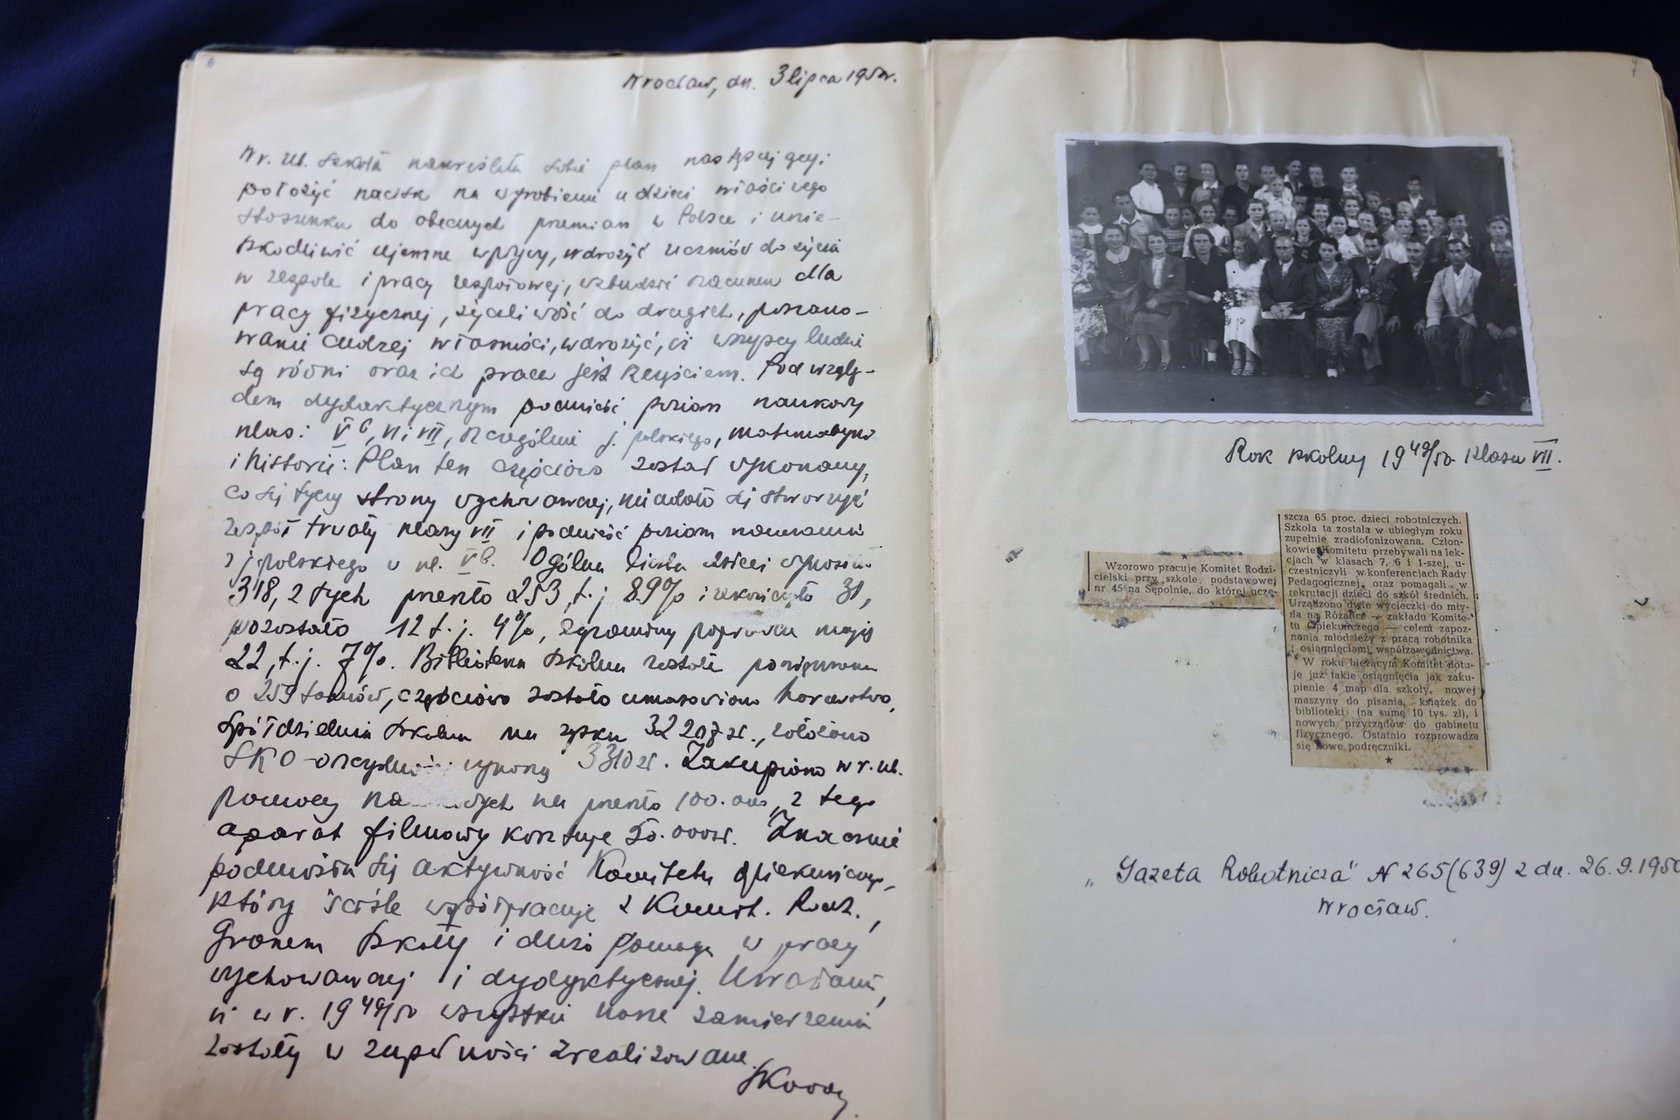 Wrocław, dn. 3 lipca 1950r.
W r. ub. szkoła nakreśliła sobie plan następujący:
położyć nacisk na wyrobienie u dzieci właściwego
stosunku do obecnych przemian w Polsce i unie-
szkodliwić ujemne wpływy, wdrożyć uczniów do życia
w zespole i pracy zespołowej, wzbudzić szacunek dla
pracy fizycznej, życzliwość do drugich, poszano-
wanie cudzej własności, wdrożyć, iż wszyscy ludzie
są równi oraz id praca jest szczęściem. Pod wzglę-
dem dydaktycznym podnieść poziom naukowy
klas: V b, VI i VII, szczególnie j. polskiego, matematyki
i historii: Plan ten częściowo został wykonany,
co się tyczy strony wychowawczej, nie udało się stworzyć
zespół trwały klasy VII i podnieść poziom nauczania
z j. polskiego w kl. V b. Ogólna liczba dzieci wynosiła
318, z tych przeszło 253, t. j 89% i ukończyło 31,
pozostało 12 t. j. 4%, egzaminy poprawcze mają
22, t. j. 7%. Biblioteka szkolna została powiększona
o 259 tomów, częściowo zostało umasowione harcerstwo,
Spółdzielnia szkolna ma zysku 32 207 zł., założono
SKO - oszczędności wynoszą 3310 zł. Zakupiono w r. ub.
pomocy naukowych na przeszło 100.000, z tego
aparat filmowy kosztuje 50.000zł. Znacznie
podniosła się aktywność Komitetu Opiekuńczego,
który ściśle współpracuje z Komit. Rodz.,
Gronem szkoły i dużo pomaga w pracy
wychowawczej i dydaktycznej. Uważam,
iż w r. 1949/50 wszystkie nasze zamierzenia
zostały w zupełności zrealizowane.
Rok szkolny 1949/50 klasa VII.
Wzorowo pracuje Komitet Rodzi-
cielski przy szkole podstawowej
nr 45 na Sępolnie, do której uczę-
szcza 65 proc. dzieci robotniczych.
Szkoła ta została w ubiegłym roku
zupełnie zradiofonizowana. Człon-
kowie Komitetu przebywali na lek-
cjach w klasach 7, 6 i 1-szej, u-
czestniczyli w konferencjach Rady
Pedagogicznej, oraz pomagali w
rekrutacji dzieci do szkół średnich.
Urządzono dwie wycieczki do mły-
na na Różance — zakładu Komite-
tu Opiekuńczego — celem zapoz-
nania młodzieży z pracą robotnika
i osiągnięciami współzawodnictwa.
W roku bieżącym Komitet notu-
je już takie osiągnięcia jak zaku-
pienie 4 map dla szkoły, nowej
maszyny do pisania, książek do
biblioteki (na sumę 10 tys. zł), i
nowych przyrządów do gabinetu
fizycznego. Ostatnio rozprowadza
się nowe podręczniki.
„Gazeta Robotnicza" N 265(639) z dn. 26.9.1950
Wrocław.